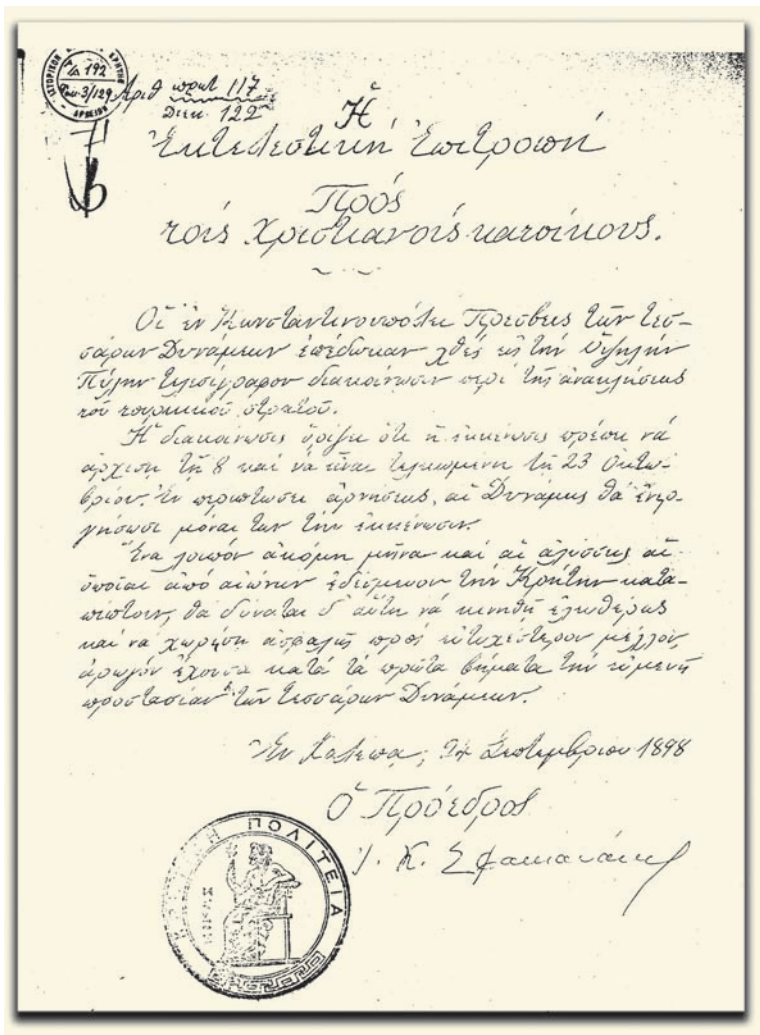 ΙΣΤΟΡΙΚΟΝ ΚΡΗΤΗΣ
192
3/129
ΑΡΧΕΙΟΝ
Αριθ πρωτ 117
Διεκ. 122
Ἡ
Ἐκτελεστική Ἐπιτροπή
Πρός
τούς Χριστιανούς κατοίκους.
Οἱ ἐν Κωνσταντινουπόλει Πρέσβεις τῶν τεσ-
σάρων Δυνάμεων ἐπέδωκαν χθές εἰς τήν Ὑψηλήν
Πύλην τελεσίγραφον διακοίνωσιν περί τῆς ἀνακλήσεως
τοῦ τουρκικοῦ στρατοῦ.
Ἡ διακοίνωσις ὁρίζει ὅτι ἡ ἐκκένωσις πρέπει νά
ἀρχίσῃ τῇ 8 καί νά εἶναι τελειωμένη τῇ 23 Ὀκτω-
βρίου. Ἐν περιπτώσει ἀρνήσεως, αἱ Δυνάμεις θά ἐνερ-
γήσωσι μόναι των τήν ἐκκένωσιν.
Ἕνα λοιπόν ἀκόμη μῆνα καί αἱ ἁλύσσεις αἱ
ὁποῖαι ἀπό αἰώνων ἐδέσμευον τήν Κρήτην κατα-
πίπτουν, θά δύναται δ' αὕτη νά κινηθῇ ἐλευθέρως
καί νά χωρήσῃ ἀσφαλῶς πρός εὐτυχέστερον μέλλον,
ἀρωγόν ἔχουσα κατά τά πρῶτα βήματα τήν εὐμενῆ
προστασίαν τῶν τεσσάρων Δυνάμεων.
Ἐν Χαλέπα, 24 Σεπτεμβρίου 1898
Ὁ Πρόεδρος
Ἰ. Κ. Σφακιανάκης
ΚΡΗΤΙΚΗ ΠΟΛΙΤΕΙΑ
ΜΙΝΩΣ